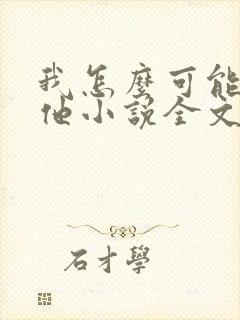 我怎麼可能
他小說全文
石才學